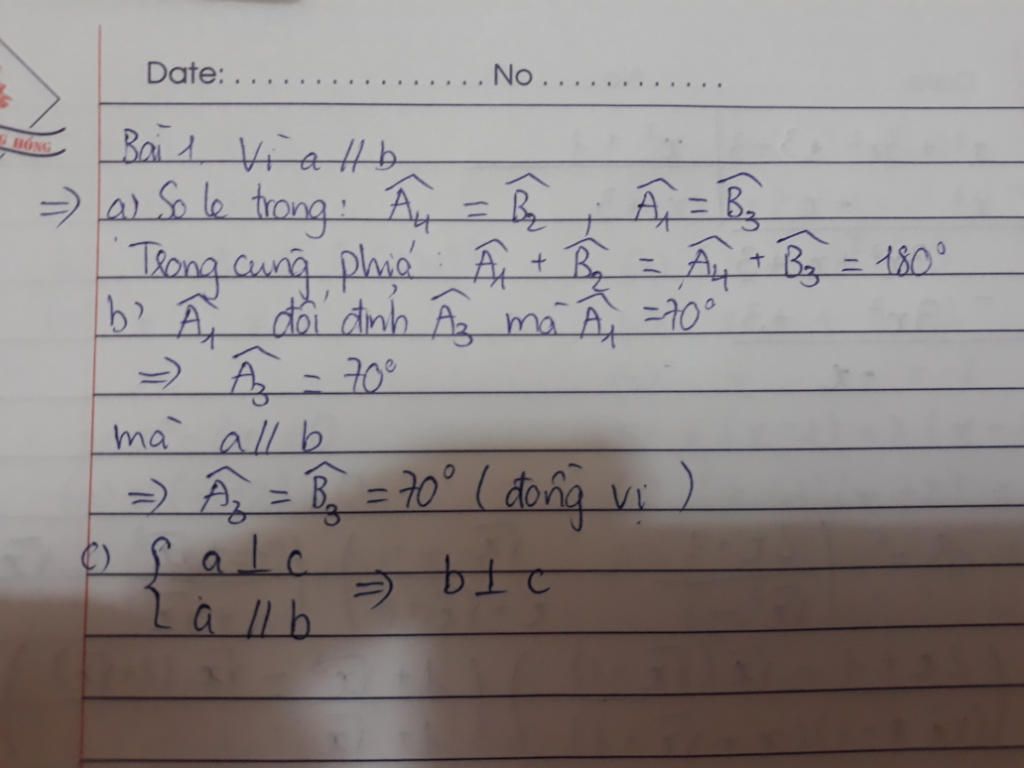 G HỒNG
Date: ................ No .............
Bài 1. Vì a // b
=> a) So le trong: Â₄ = B̂₂ , Â₁ = B̂₃
Trong cùng phía: Â₁ + B̂₂ = Â₄ + B̂₃ = 180°
b) Â₁ đối đỉnh Â₃ mà Â₁ = 70°
=> Â₃ = 70°
mà a // b
=> Â₃ = B̂₃ = 70° (đồng vị)
c) { a ⊥ c
a // b => b ⊥ c